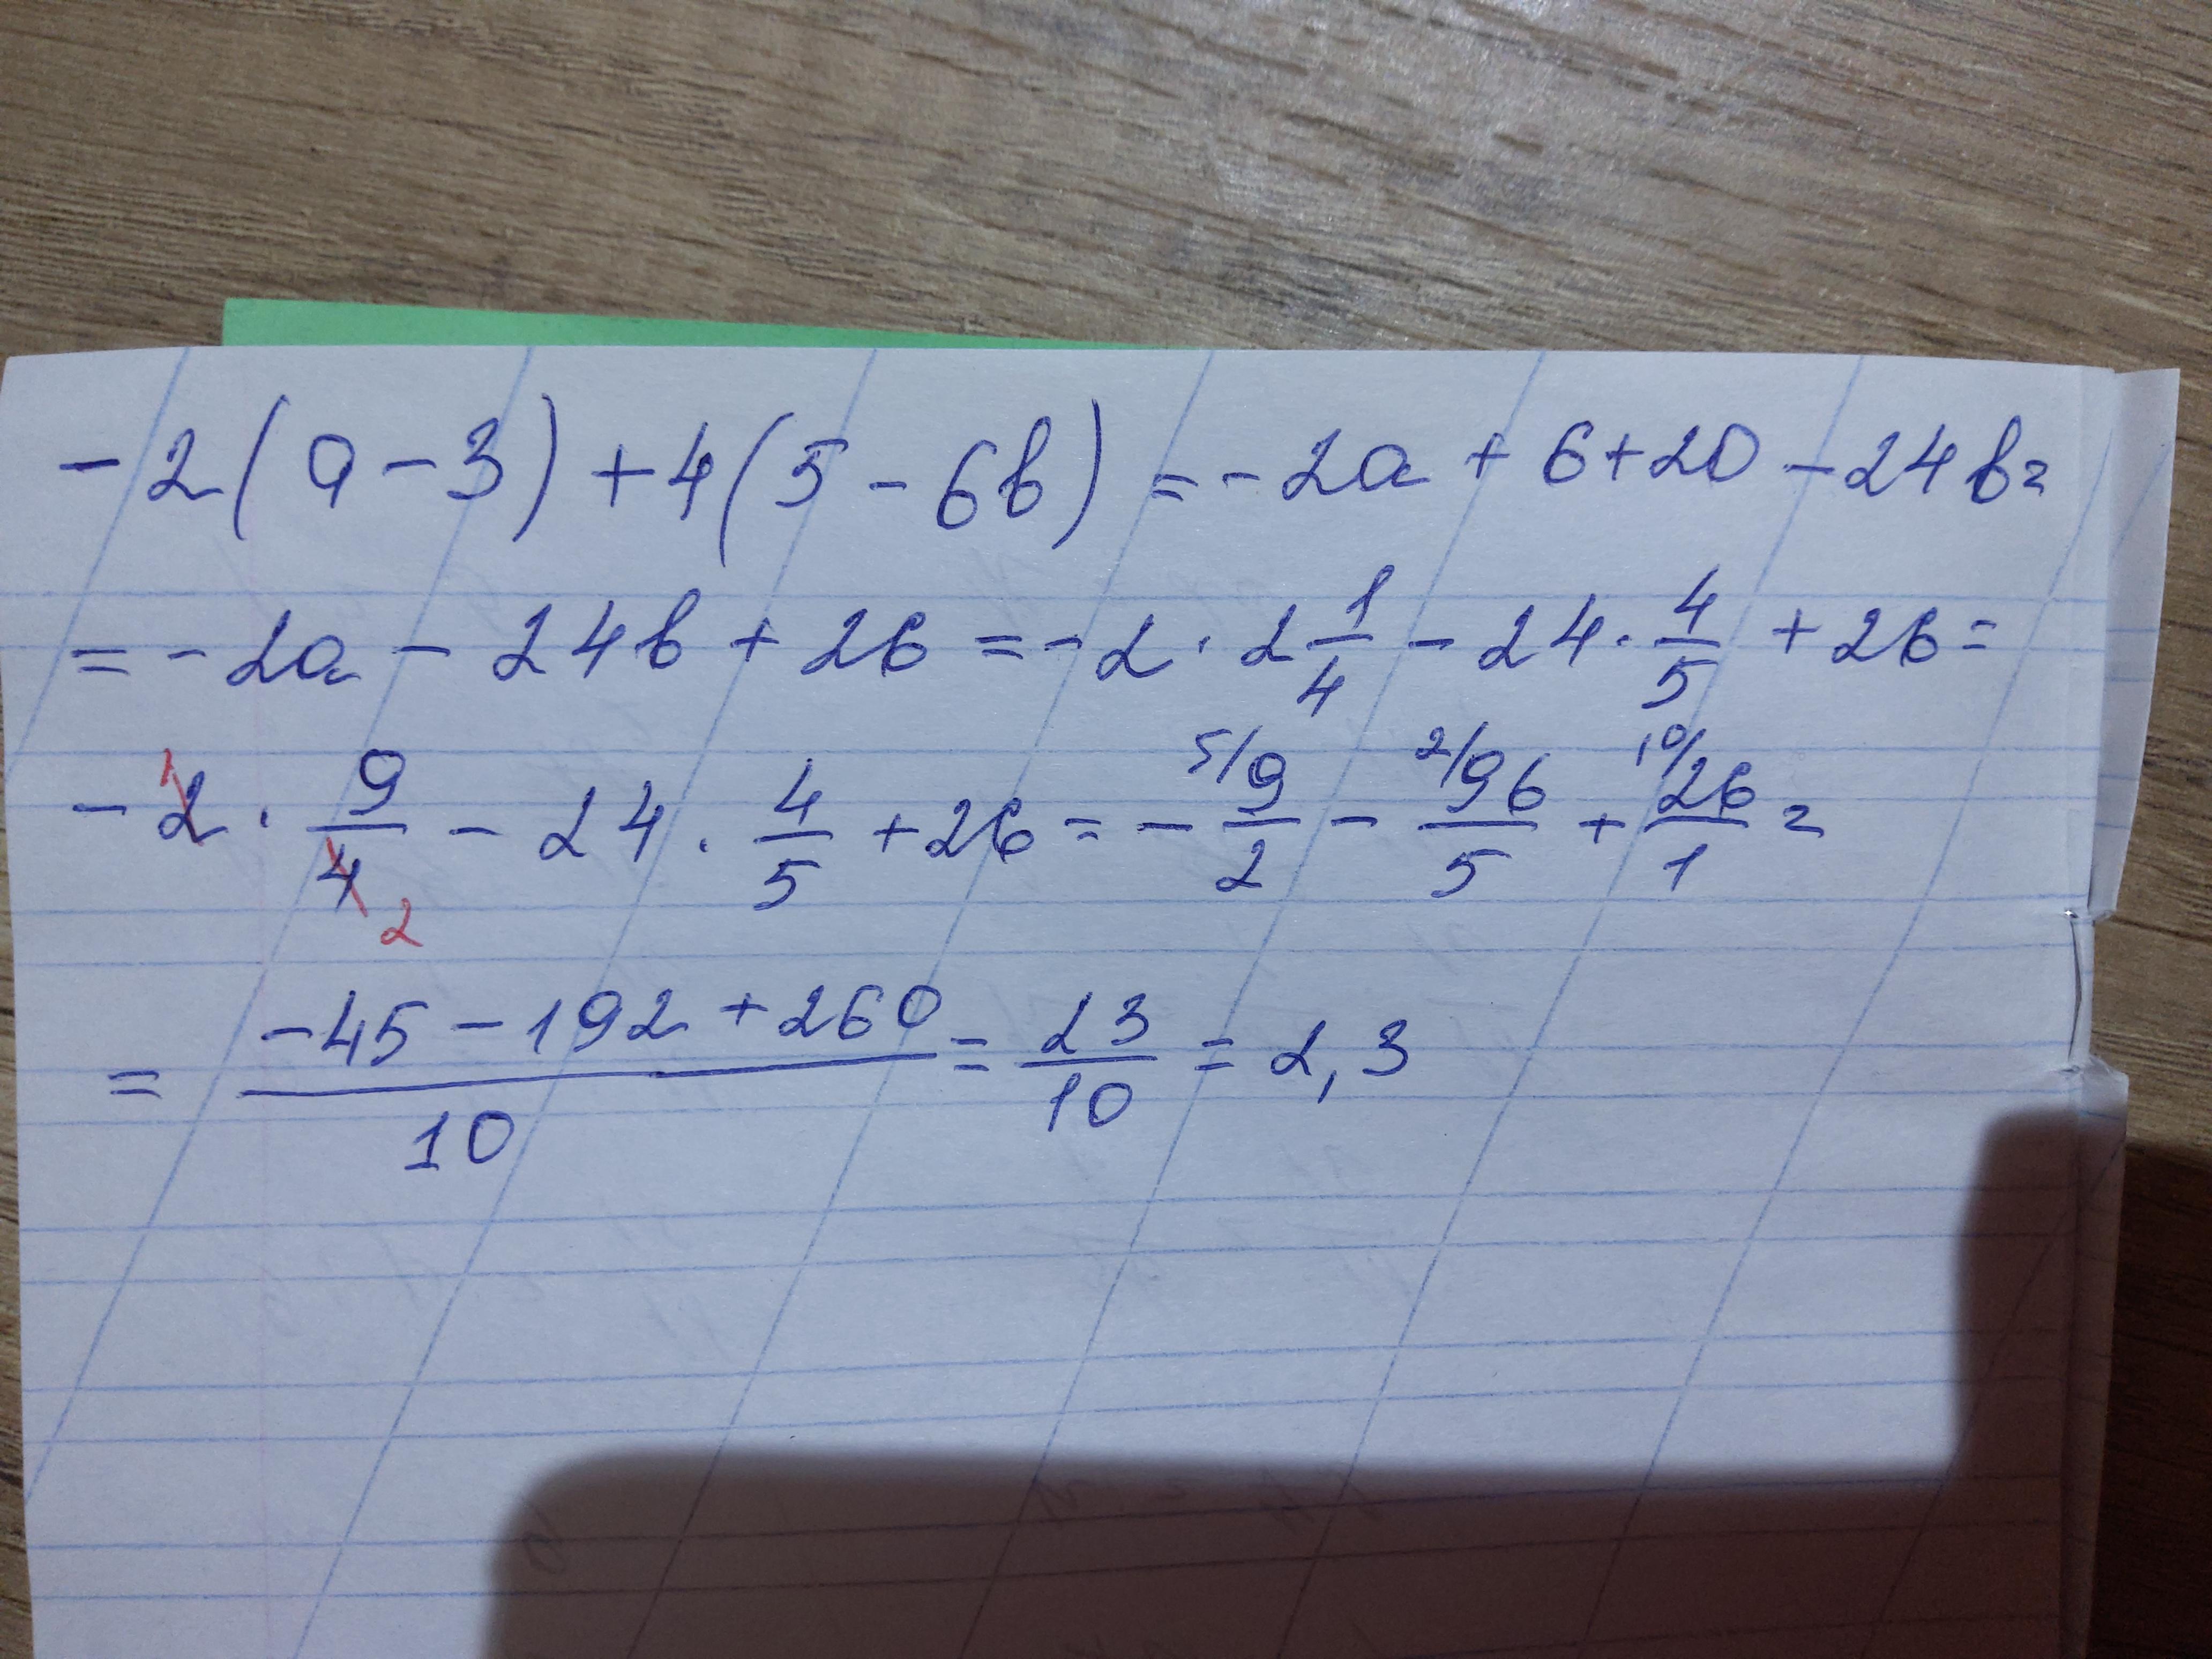 -2(a-3)+4(5-6b)=-2a+6+20-24b=
=-2a-24b+26=-2·2 1/4-24·4/5+26=
-2·9/4-24·4/5+26=-9/2-96/5+26/1=
1 2 5/ 2/ 10/
=(-45-192+260)/10=23/10=2,3